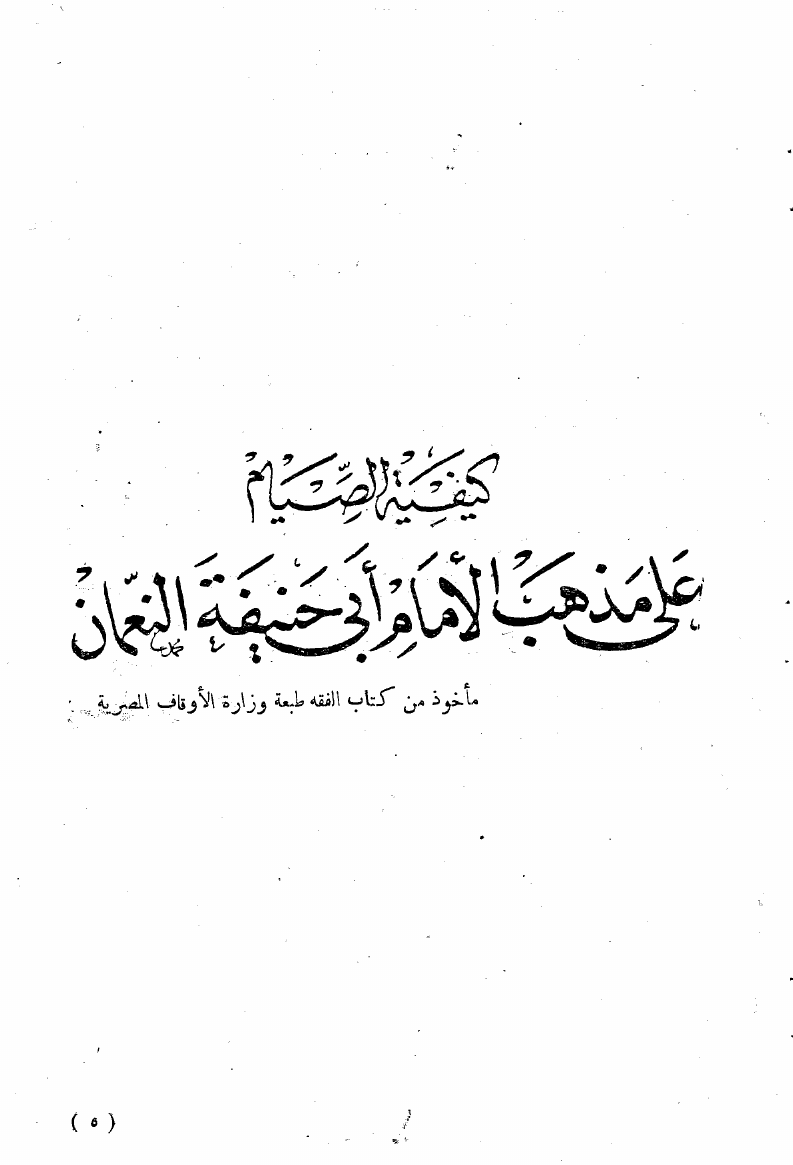 كَيْفِيَةُ الصِّيَامْ
عَلَى مَذْهَبْ الأمَامِ أَبِي حَنِيفَةَ النعْمَانْ
مأخوذ من كتاب الفقه طبعة وزارة الأوقاف المصرية
( ٥ )